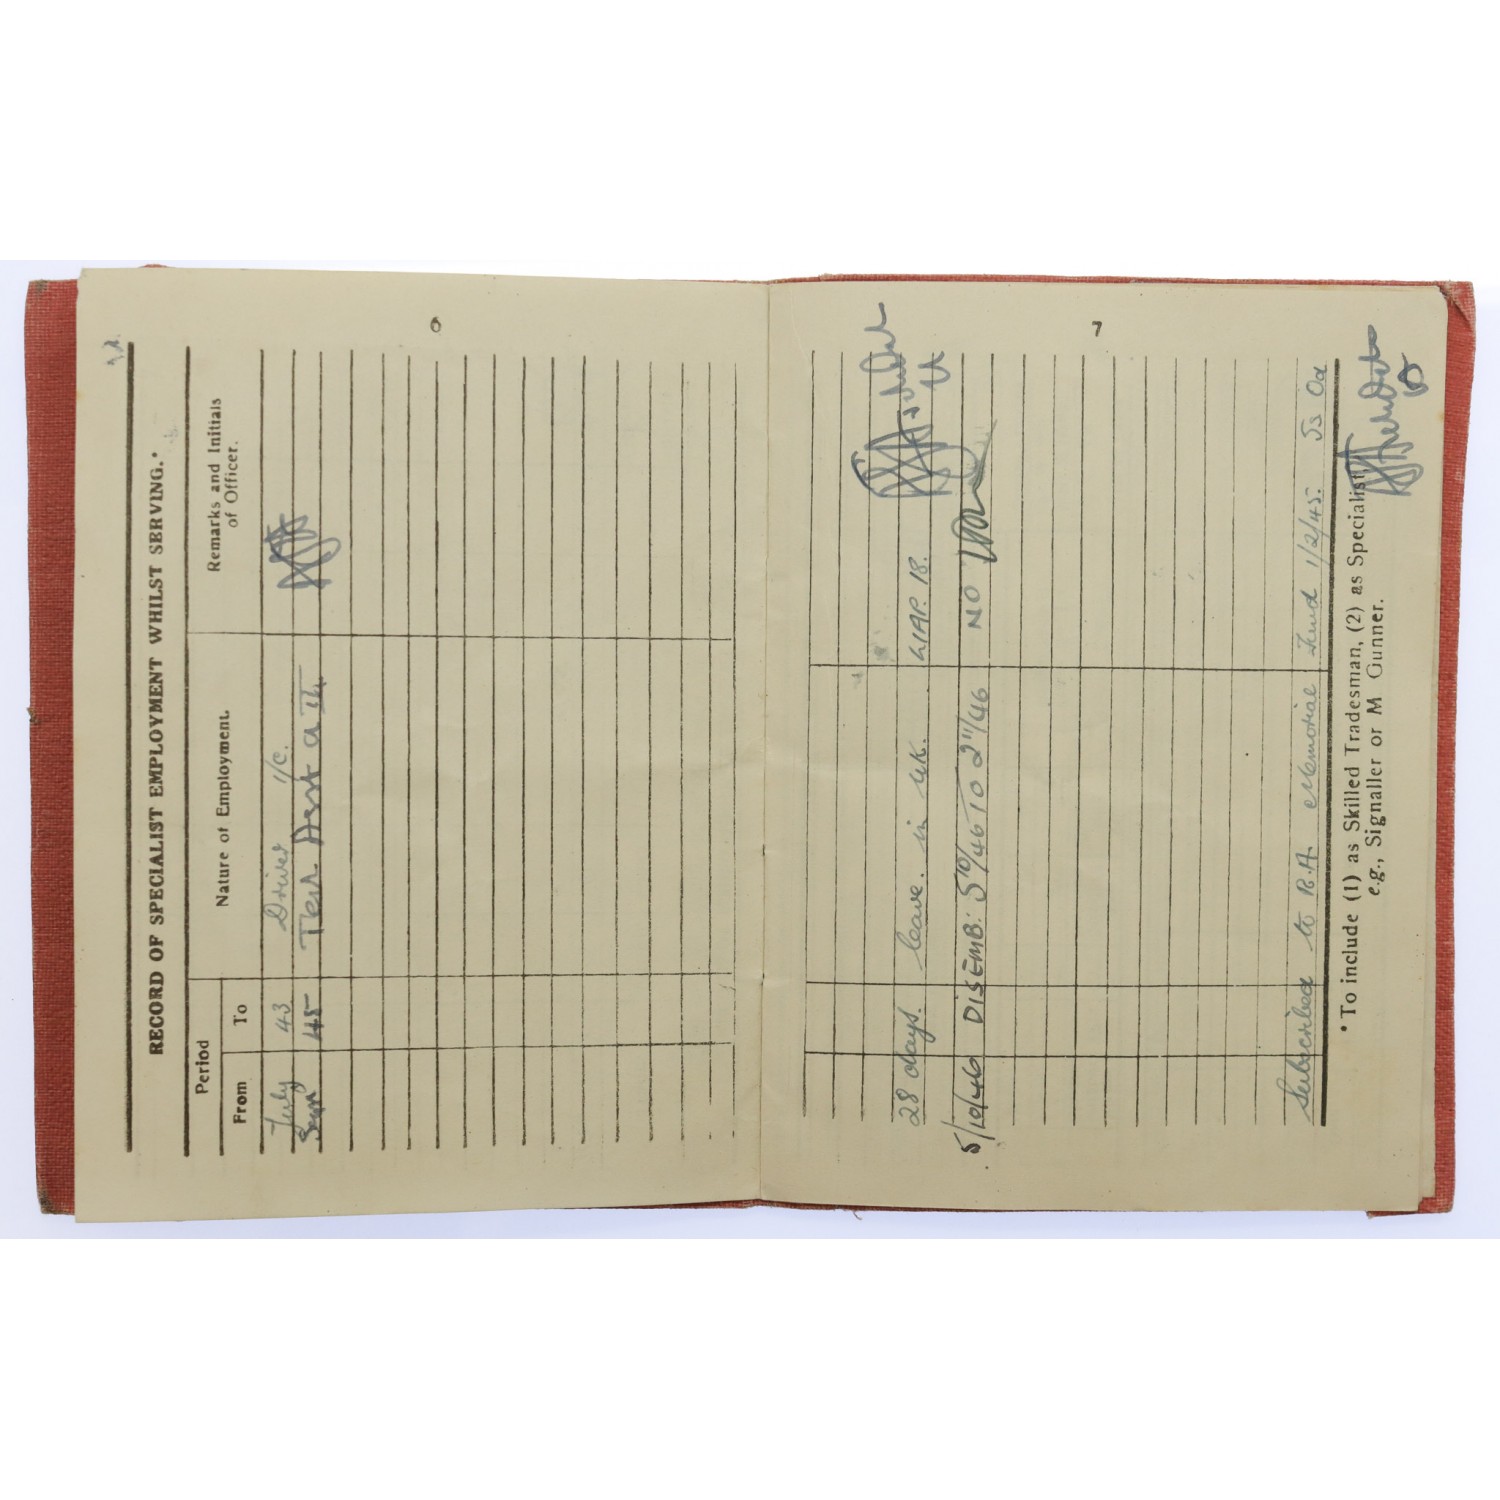 6
RECORD OF SPECIALIST EMPLOYMENT WHILST SERVING.*
Period
From To Nature of Employment. Remarks and Initials of Officer.
July 43 Driver i/c.
45
7
28 days. leave. in UK. LIAP. 18.
5/10/46 DISEMB: 5 10/46 TO 2 11/46 NO
Subscribed to R.A. Memorial Fund 1/2/45. 5s 0d
* To include (1) as Skilled Tradesman, (2) as Specialist,
e.g., Signaller or M Gunner.